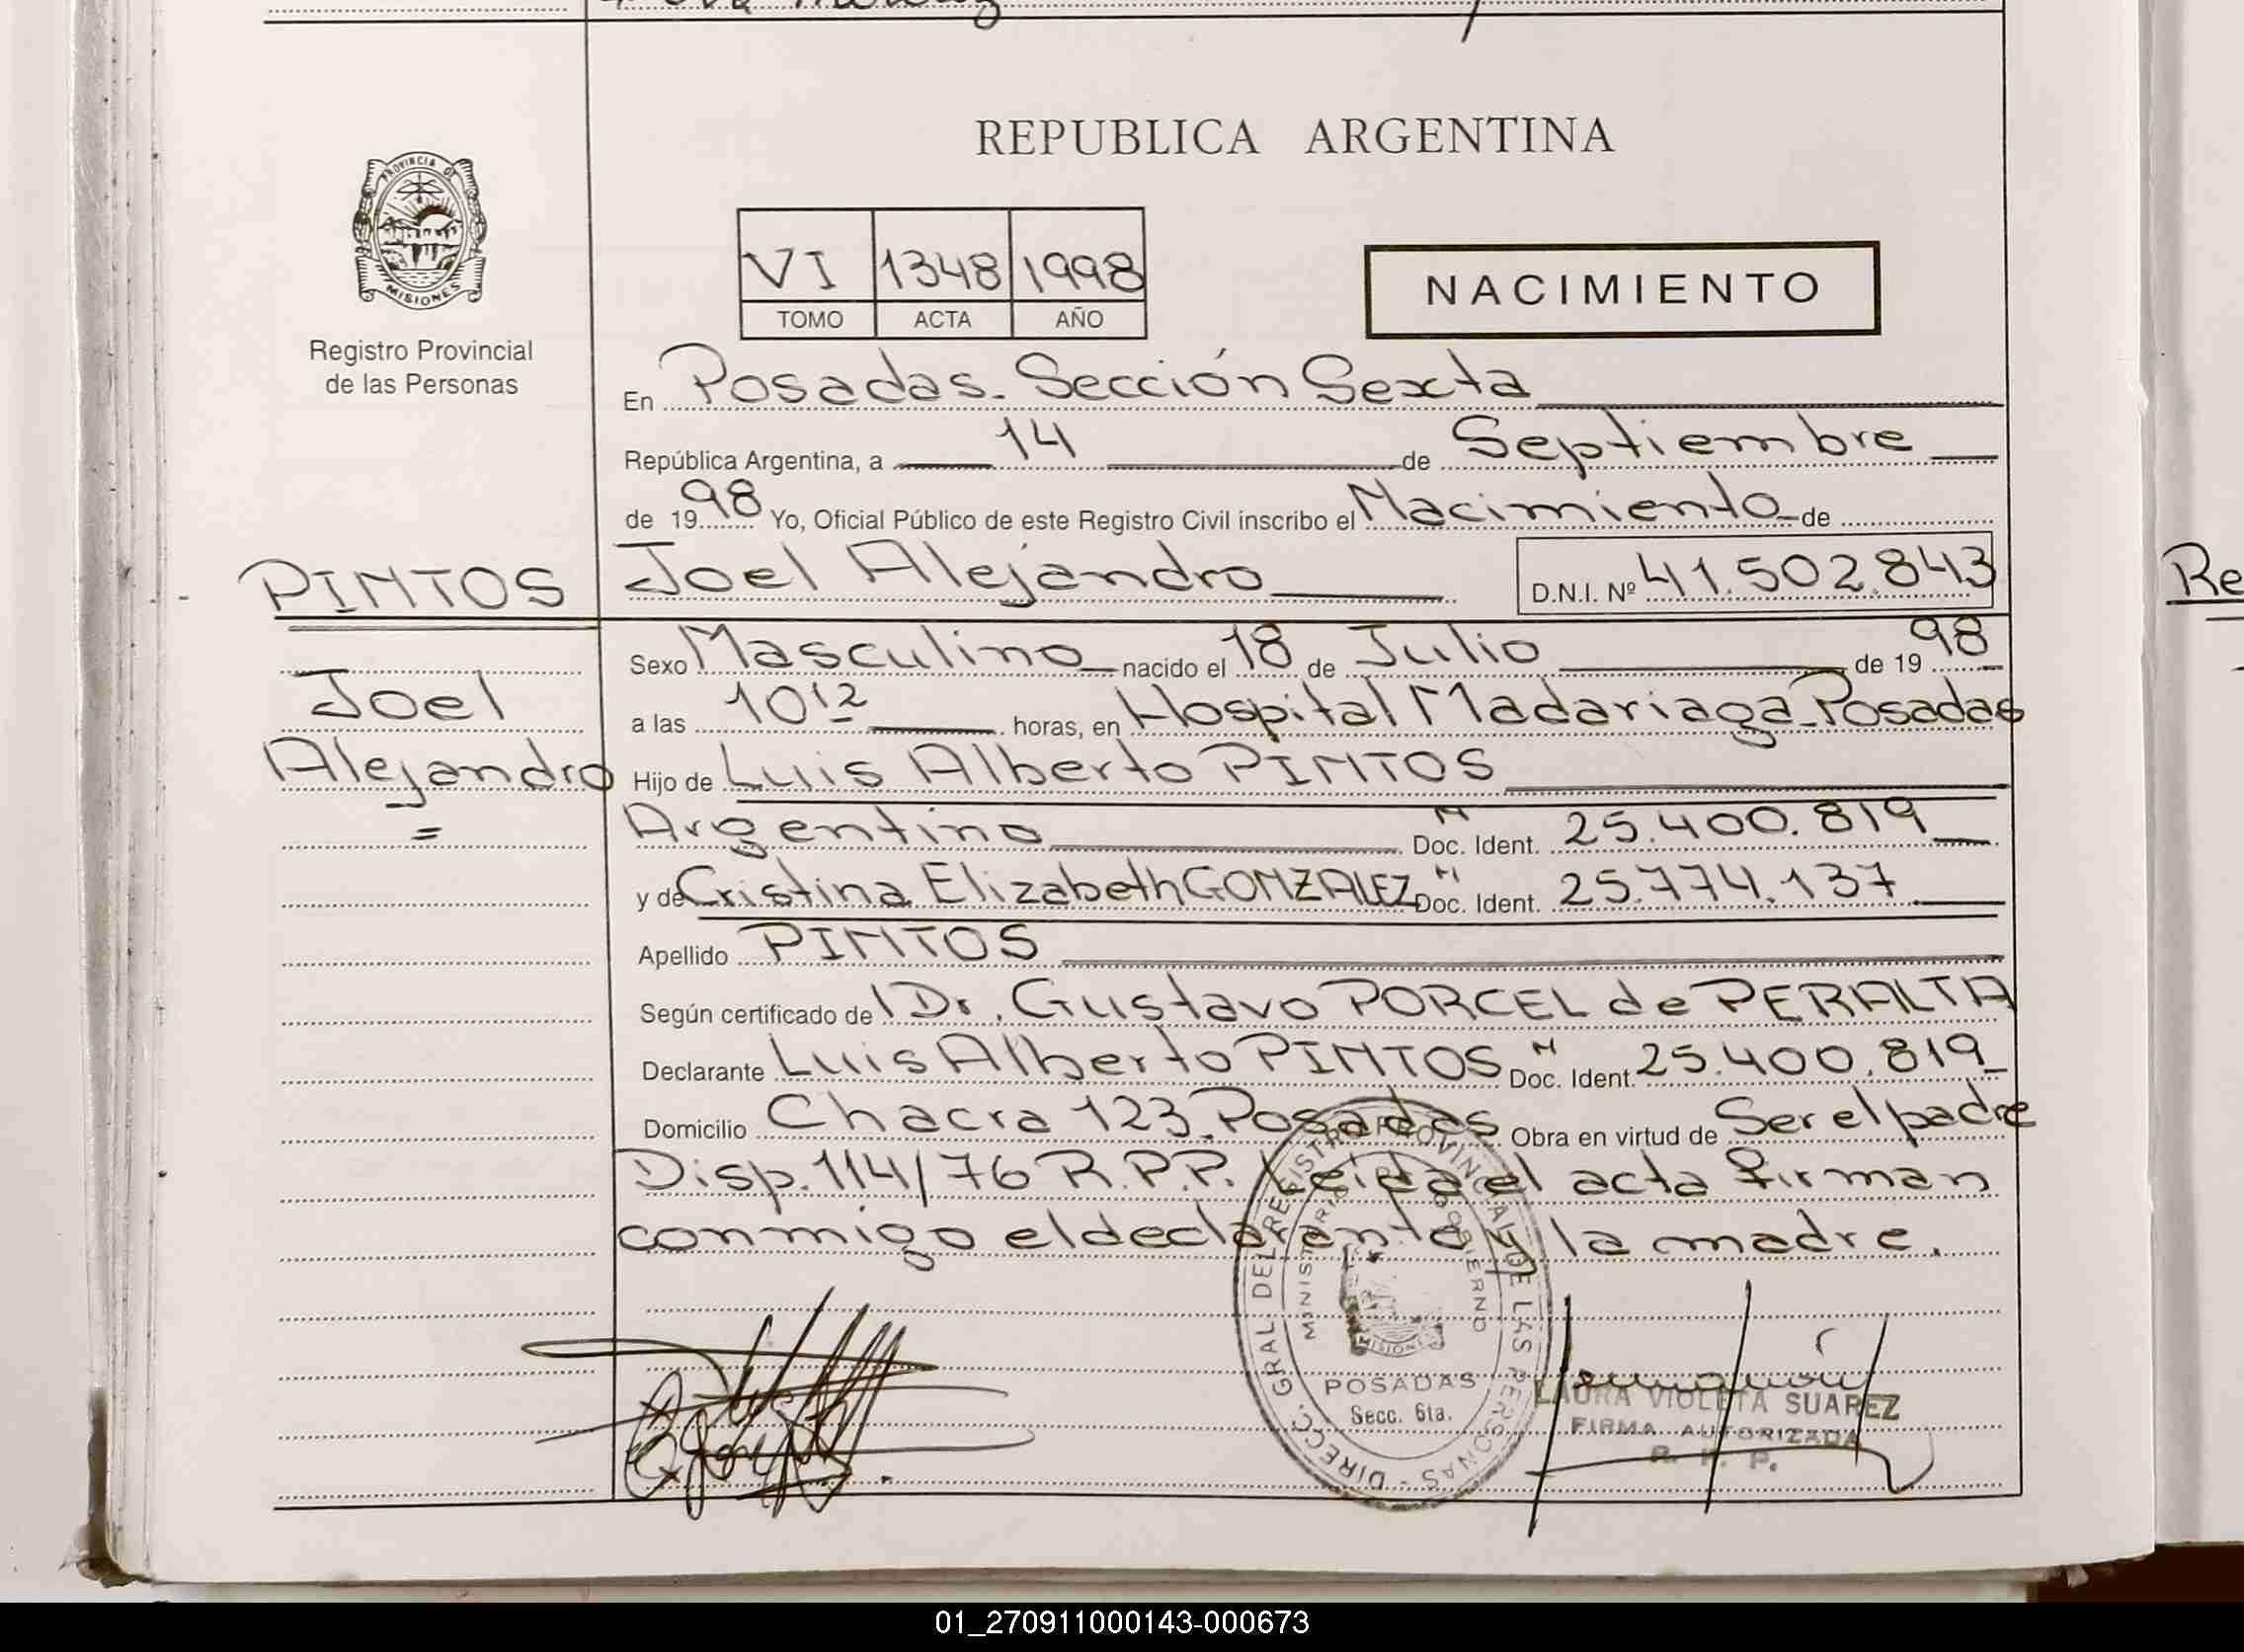 REPUBLICA ARGENTINA
PROVINCIA DE
MISIONES
Registro Provincial
de las Personas
VI 1348 1998
TOMO ACTA AÑO
NACIMIENTO
En Posadas. Sección Sexta
República Argentina, a 14 de Septiembre
de 1998 Yo, Oficial Público de este Registro Civil inscribo el Nacimiento de
PINTOS
Joel
Alejandro
=
Joel Alejandro D.N.I. Nº 41.502.843
Sexo Masculino nacido el 18 de Julio de 1998
a las 10¹² horas, en Hospital Madariaga-Posadas
Hijo de Luis Alberto PINTOS
Argentino Doc. Ident. N 25.400.819
y de Cristina Elizabeth GONZALEZ Doc. Ident. N 25.774.137
Apellido PINTOS
Según certificado de Dr. Gustavo PORCEL de PERALTA
Declarante Luis Alberto PINTOS Doc. Ident. N 25.400.819
Domicilio Chacra 123-Posadas Obra en virtud de Ser el padre
Disp. 114/76 R.P.P. Leida el acta firman
conmigo el declarante y la madre.
DIRECC. GRAL. DEL REGISTRO PROVINCIAL DE LAS PERSONAS -
MINISTERIO GOBIERNO
MISIONES
POSADAS
Secc. 6ta.
LAURA VIOLETA SUAREZ
FIRMA AUTORIZADA
R. P. P.
Re
01_270911000143-000673